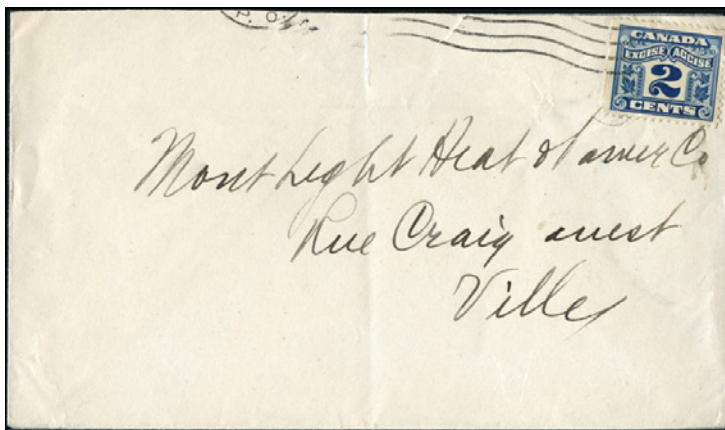 P. O.
CANADA
EXCISE ACCISE
2
CENTS
Mont Light Heat & Power Co
Rue Craig ouest
Ville